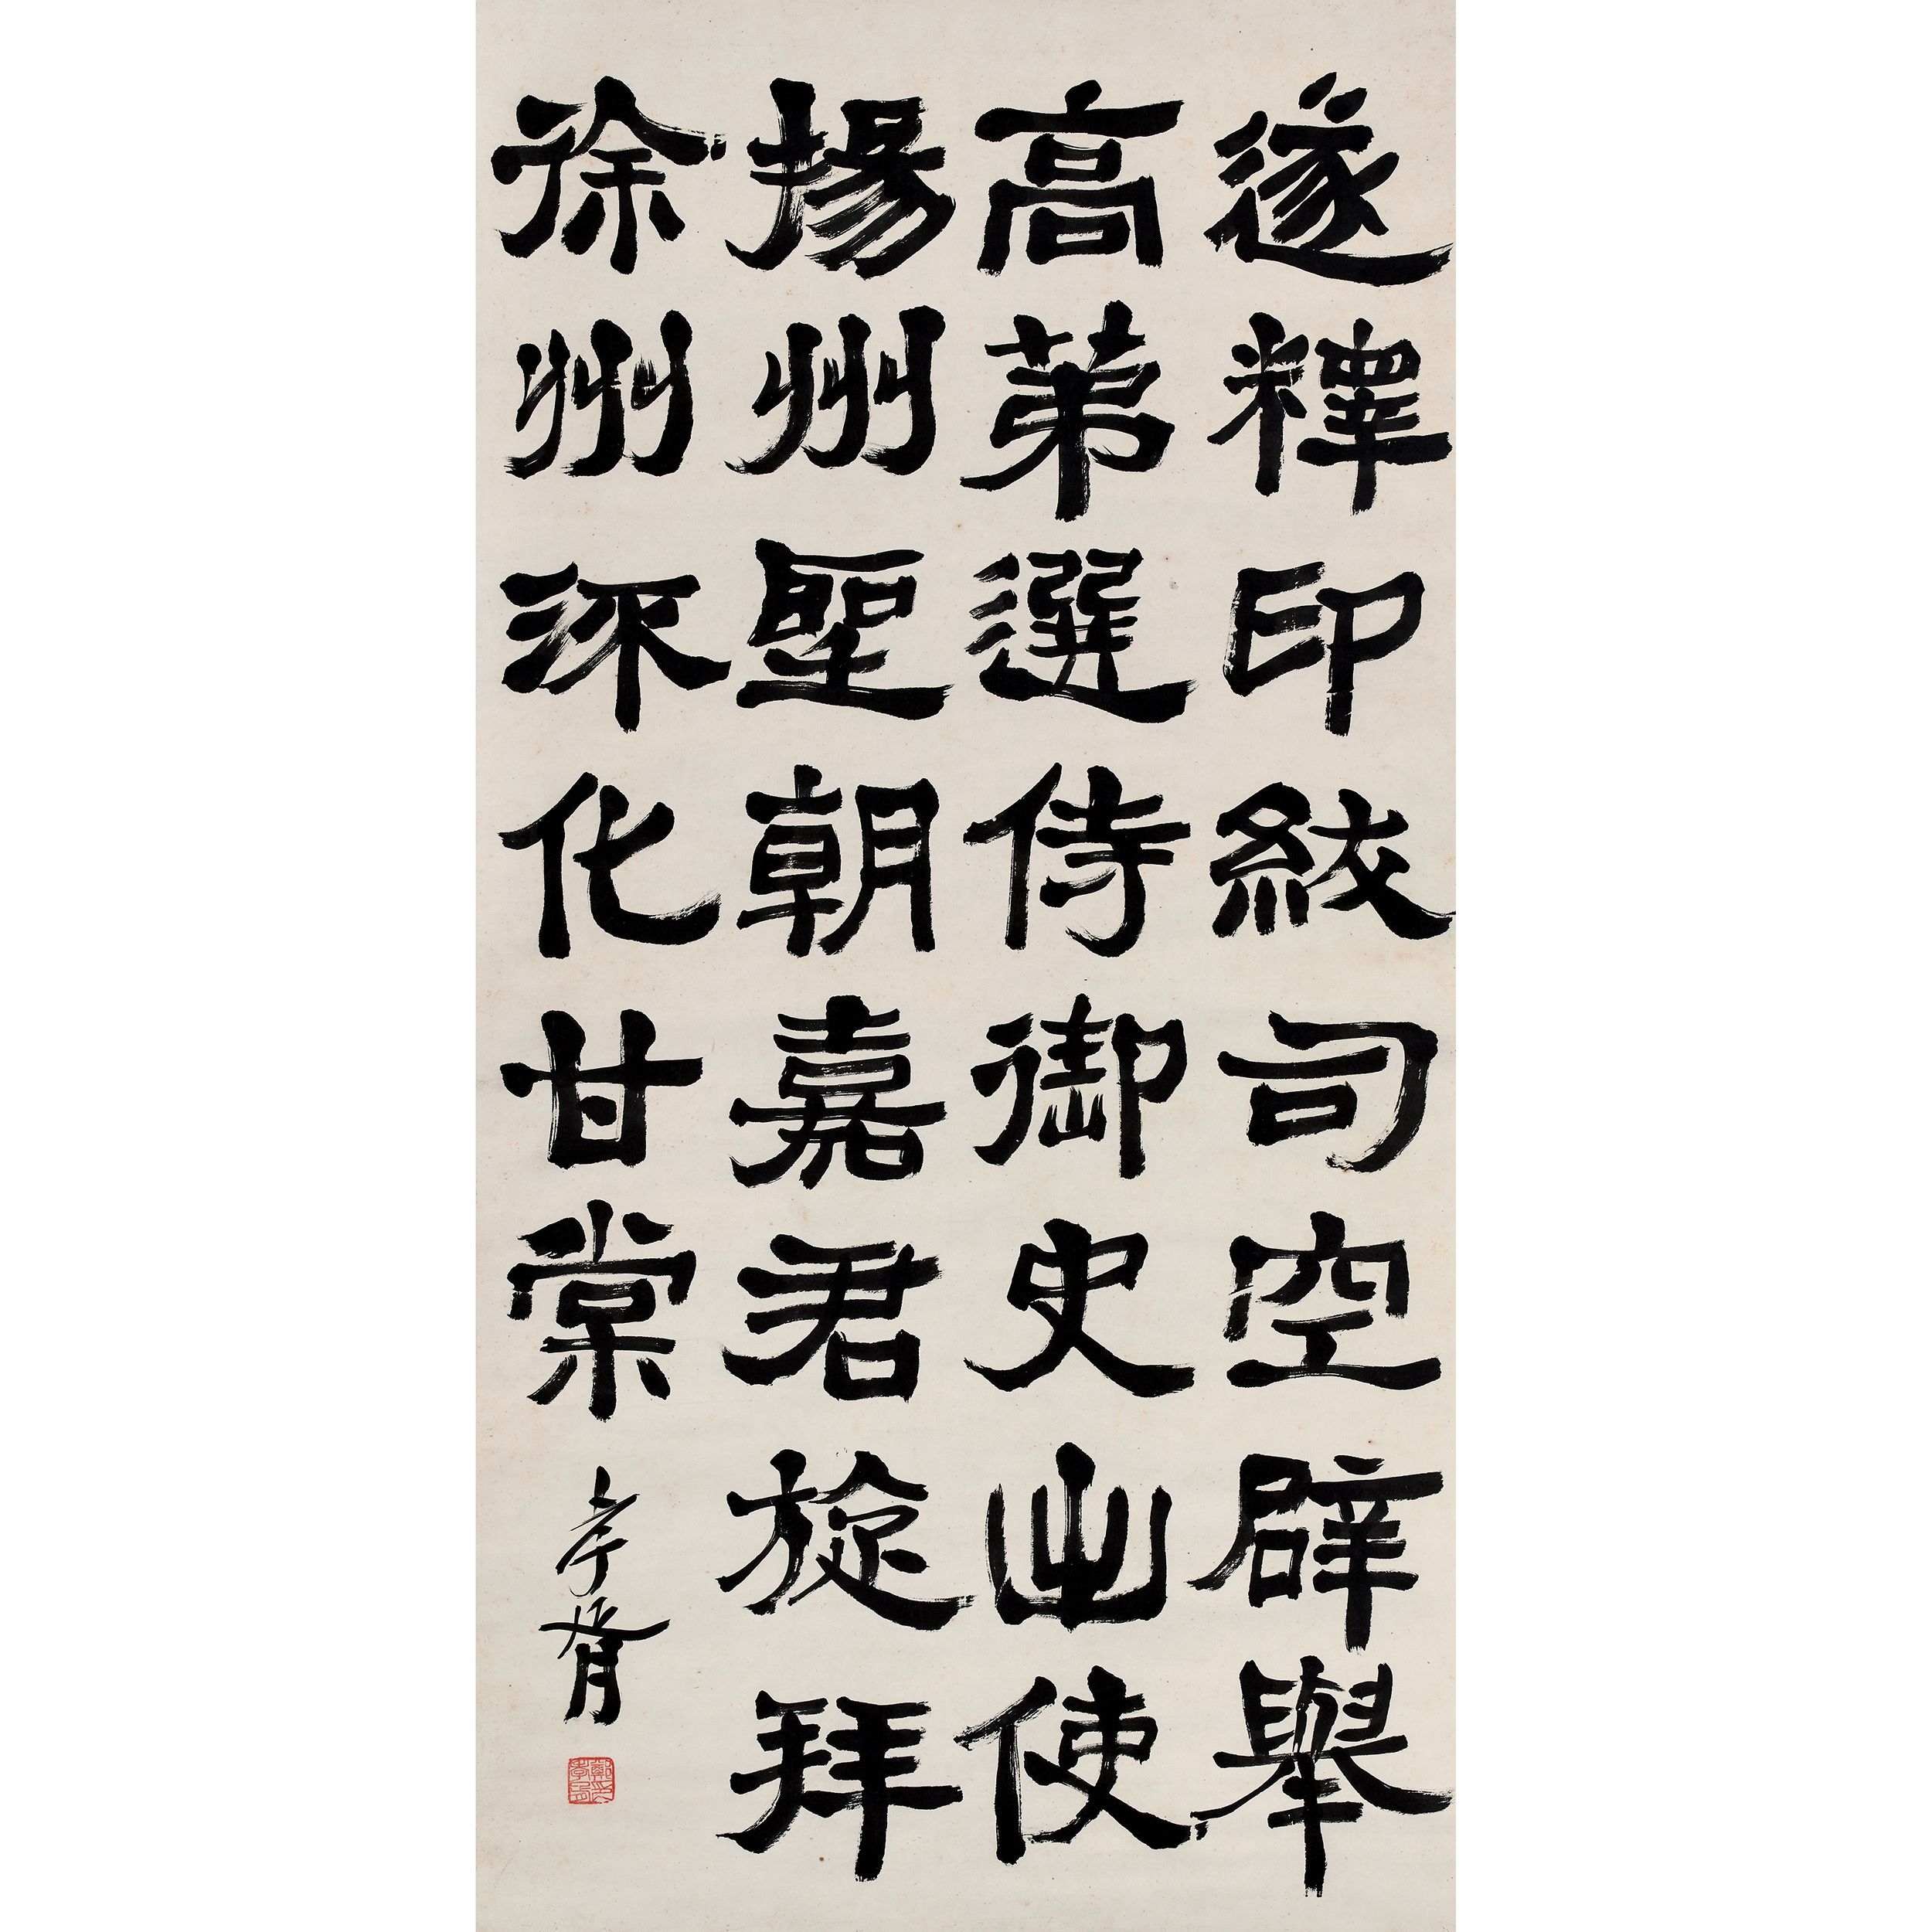 遂釋印紱司空辟舉
高第選侍御史出使
揚州聖朝嘉君旋拜
徐州流化甘棠
孝胥